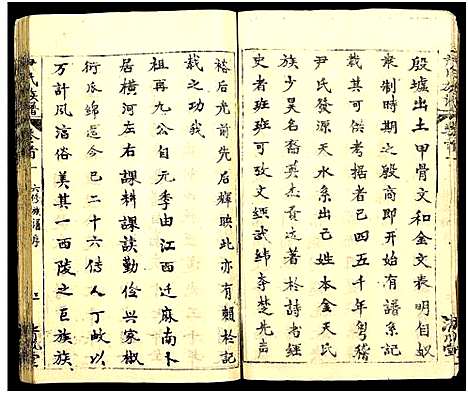 殷墟出土甲骨文和金文表明自奴
隶制時期之殷商即开始有譜系記
载其可供考据者已四五千年粤稽
尹氏發源天水系出己姓本金天氏
族少昊名裔英杰貢远著於詩者
史者班班可攷文经武纬李楚先声
裕后光前先后輝映此亦有赖於記
载之功我
祖再九公自元季由江西迁麻南卜
居横河左右課料課读勤俭兴家椒
衍瓜綿迄今已二十六传人丁岐以
万計风淳俗美其一西陵之巨族族
氏族譜
卷首
六修族譜序